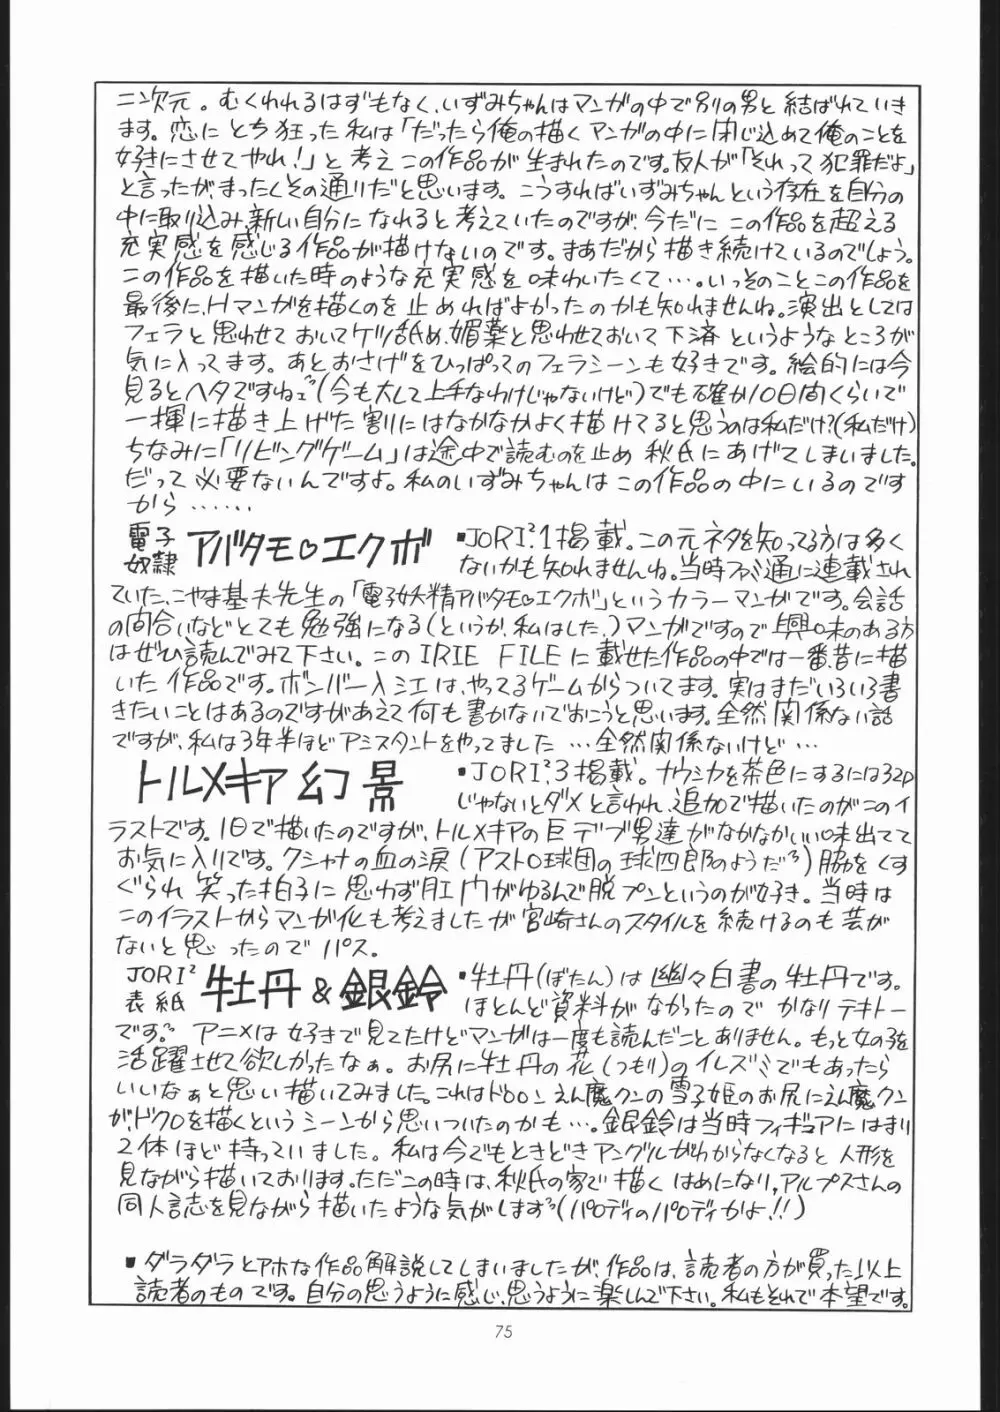 二次元。むくわれるはずもなく、いずみちゃんはマンガの中で別の男と結ばれていき
ます。恋にとち狂った私は「だったら俺の描くマンガの中に閉じ込めて俺のことを
好きにさせてやれ!」と考えこの作品が生まれたのです。友人が「それって犯罪だよ」
と言ったが、まったくその通りだと思います。こうすればいずみちゃんという存在を自分の
中に取り込み、新しい自分になれると考えていたのですが、今だにこの作品を超える
充実感を感じる作品が描けないのです。まあだから描き続けているのでしょう。
この作品を描いた時のような充実感を味わいたくて…。いっそのことこの作品を
最後に、Hマンガを描くのを止めればよかったのかも知れませんね。演出としては
フェラと思わせておいてケツ舐め、媚薬と思わせておいて下済というようなところが
気に入ってます。あとおさげをひっぱってのフェラシーンも好きです。絵的には今
見るとヘタですねェ(今も大して上手なわけじゃないけど)でも確か10日間くらいで
一揮に描き上げた割にはなかなかよく描けてると思うのは私だけ?(私だけ)
ちなみに「リビングゲーム」は途中で読むのを止め秋氏にあげてしまいました。
だって必要ないんですよ。私のいずみちゃんはこの作品の中にいるのです
から……
電子奴隷 アバタモ♡エクボ
▪JORI²1掲載。この元ネタを知ってる方は多く
ないかも知れませんね。当時ファミ通に連載され
ていた、こやま基夫先生の「電子妖精アバタモ♡エクボ」というカラーマンガです。会話
の間合いなどとても勉強になる(というか、私はした、)マンガですので興味のある方
はぜひ読んでみて下さい。このIRIE FILEに載せた作品の中では一番昔に描
いた作品です。ボンバー入江は、やってるゲームからついてます。実はまだいろいろ書
きたいことはあるのですがあえて何も書かないでおこうと思います。全然関係ない話
ですが、私は3年半ほどアシスタントをやってました…全然関係ないけど…
トルメキア幻景
▪JORI²3掲載。ナウシカを茶色にするには32P
じゃないとダメと言われ、追加で描いたのがこのイ
ラストです。1日で描いたのですが、トルメキアの巨デブ男達がなかなかいい味出てて
お気に入りです。クシャナの血の涙(アストロ球団の球四郎のようだ)脇をくす
ぐられ笑った拍子に思わず肛門がゆるんで脱プンというのが好き。当時は
このイラストからマンガ化も考えましたが宮崎さんのスタイルを続けるのも芸が
ないと思ったのでパス。
JORI²表紙 牡丹&銀鈴
▪牡丹(ぼたん)は幽々白書の牡丹です。
ほとんど資料がなかったのでかなりテキトー
です。アニメは好きで見てたけどマンガは一度も読んだことありません。もっと女の子を
活躍させて欲しかったなぁ。お尻に牡丹の花(つもり)のイレズミでもあったら
いいなぁと思い描いてみました。これはドロロンえん魔クンの雪子姫のお尻にえん魔クン
が、ドクロを描くというシーンから思いついたのかも…。銀鈴は当時フィギュアにはまり
2体ほど持っていました。私は今でもときどきアングルがわからなくなると人形を
見ながら描いております。ただこの時は、秋氏の家で描くはめになり、アルプスさんの
同人誌を見ながら描いたような気がします(パロディのパロディかよ!!)
▪ダラダラとアホな作品解説してしまいましたが、作品は、読者の方が買った以上
読者のものです。自分の思うように感じ、思うように楽しんで下さい。私もそれで本望です。
75